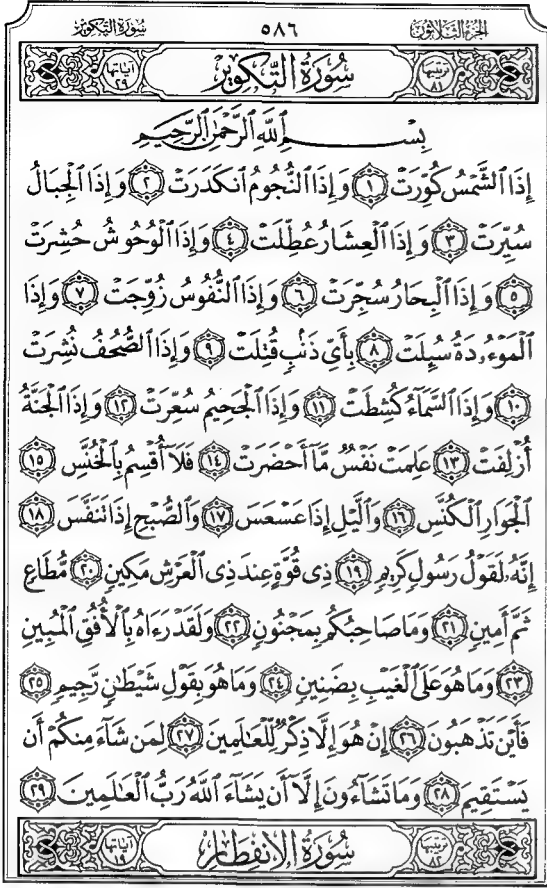 الجزء الثلاثون ٥٨٦ سورة التكوير
ترتيبها ٨١ سُورَةُ التَّكْوِيرِ آياتها ٢٩
بِسْمِ ٱللَّهِ ٱلرَّحْمَٰنِ ٱلرَّحِيمِ
إِذَا ٱلشَّمْسُ كُوِّرَتْ ١ وَإِذَا ٱلنُّجُومُ ٱنكَدَرَتْ ٢ وَإِذَا ٱلْجِبَالُ
سُيِّرَتْ ٣ وَإِذَا ٱلْعِشَارُ عُطِّلَتْ ٤ وَإِذَا ٱلْوُحُوشُ حُشِرَتْ
٥ وَإِذَا ٱلْبِحَارُ سُجِّرَتْ ٦ وَإِذَا ٱلنُّفُوسُ زُوِّجَتْ ٧ وَإِذَا
ٱلْمَوْءُۥدَةُ سُئِلَتْ ٨ بِأَيِّ ذَنۢبٍ قُتِلَتْ ٩ وَإِذَا ٱلصُّحُفُ نُشِرَتْ
١٠ وَإِذَا ٱلسَّمَآءُ كُشِطَتْ ١١ وَإِذَا ٱلْجَحِيمُ سُعِّرَتْ ١٢ وَإِذَا ٱلْجَنَّةُ
أُزْلِفَتْ ١٣ عَلِمَتْ نَفْسٌ مَّآ أَحْضَرَتْ ١٤ فَلَآ أُقْسِمُ بِٱلْخُنَّسِ ١٥
ٱلْجَوَارِ ٱلْكُنَّسِ ١٦ وَٱلَّيْلِ إِذَا عَسْعَسَ ١٧ وَٱلصُّبْحِ إِذَا تَنَفَّسَ ١٨
إِنَّهُۥ لَقَوْلُ رَسُولٍ كَرِيمٍ ١٩ ذِى قُوَّةٍ عِندَ ذِى ٱلْعَرْشِ مَكِينٍ ٢٠ مُّطَاعٍ
ثَمَّ أَمِينٍ ٢١ وَمَا صَاحِبُكُم بِمَجْنُونٍ ٢٢ وَلَقَدْ رَءَاهُ بِٱلْأُفُقِ ٱلْمُبِينِ
٢٣ وَمَا هُوَ عَلَى ٱلْغَيْبِ بِضَنِينٍ ٢٤ وَمَا هُوَ بِقَوْلِ شَيْطَٰنٍ رَّجِيمٍ ٢٥
فَأَيْنَ تَذْهَبُونَ ٢٦ إِنْ هُوَ إِلَّا ذِكْرٌ لِّلْعَٰلَمِينَ ٢٧ لِمَن شَآءَ مِنكُمْ أَن
يَسْتَقِيمَ ٢٨ وَمَا تَشَآءُونَ إِلَّآ أَن يَشَآءَ ٱللَّهُ رَبُّ ٱلْعَٰلَمِينَ ٢٩
ترتيبها ٨٢ سُورَةُ الِانفِطَارِ آياتها ١٩